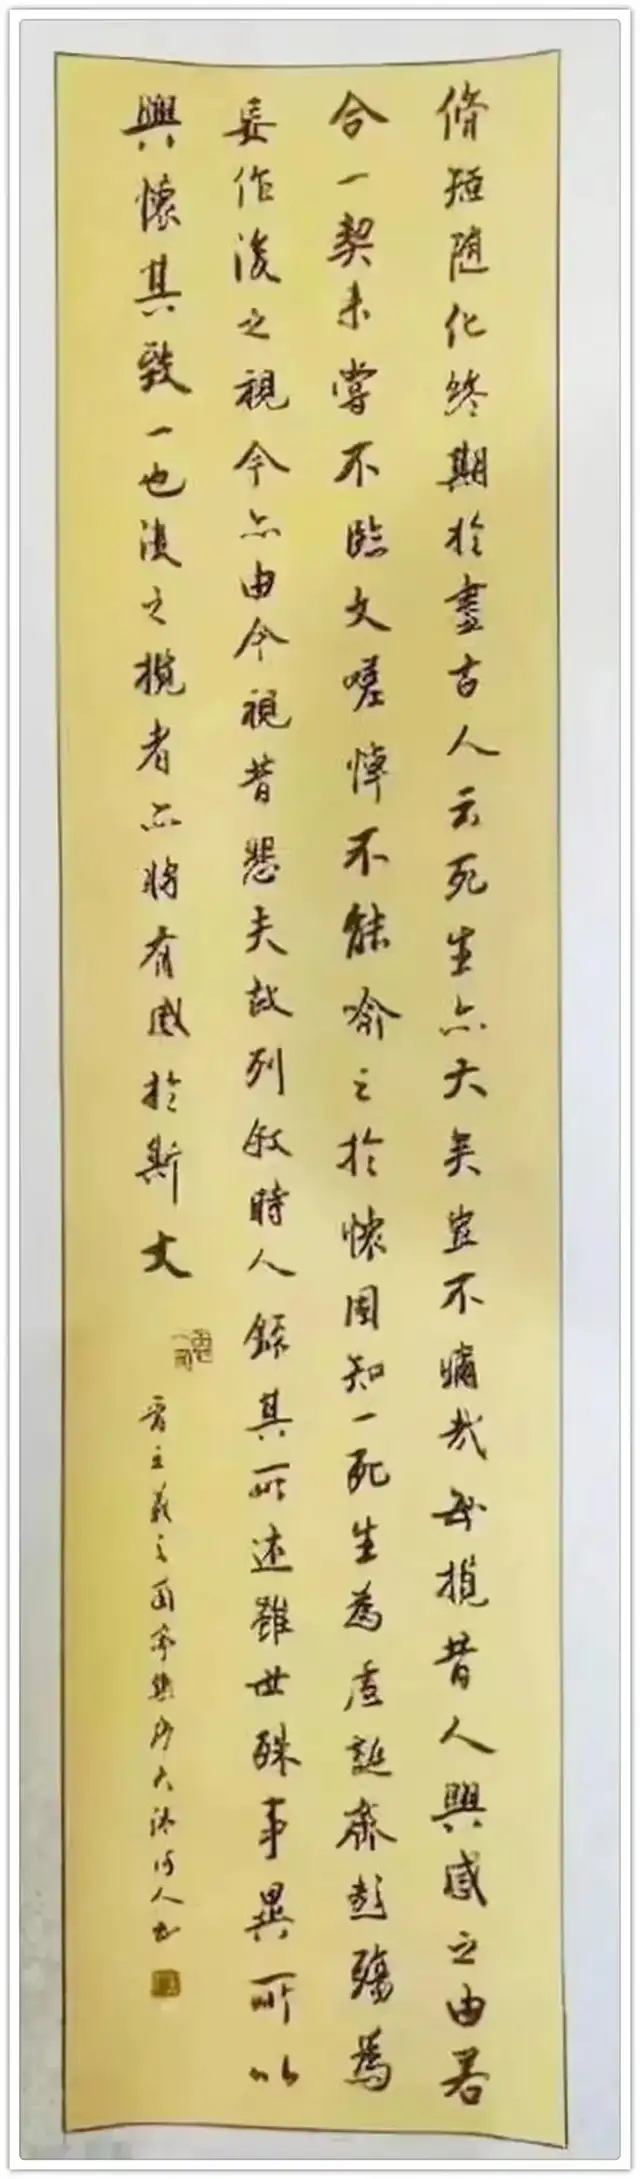 脩短随化終期於盡古人云死生亦大矣豈不痛哉每攬昔人興感之由若
合一契未嘗不臨文嗟悼不能喻之於懷固知一死生為虛誕齊彭殤為
妄作後之視今亦由今視昔悲夫故列敘時人錄其所述雖世殊事異所以
興懷其致一也後之攬者亦將有感於斯文
晋王羲之蘭亭集序